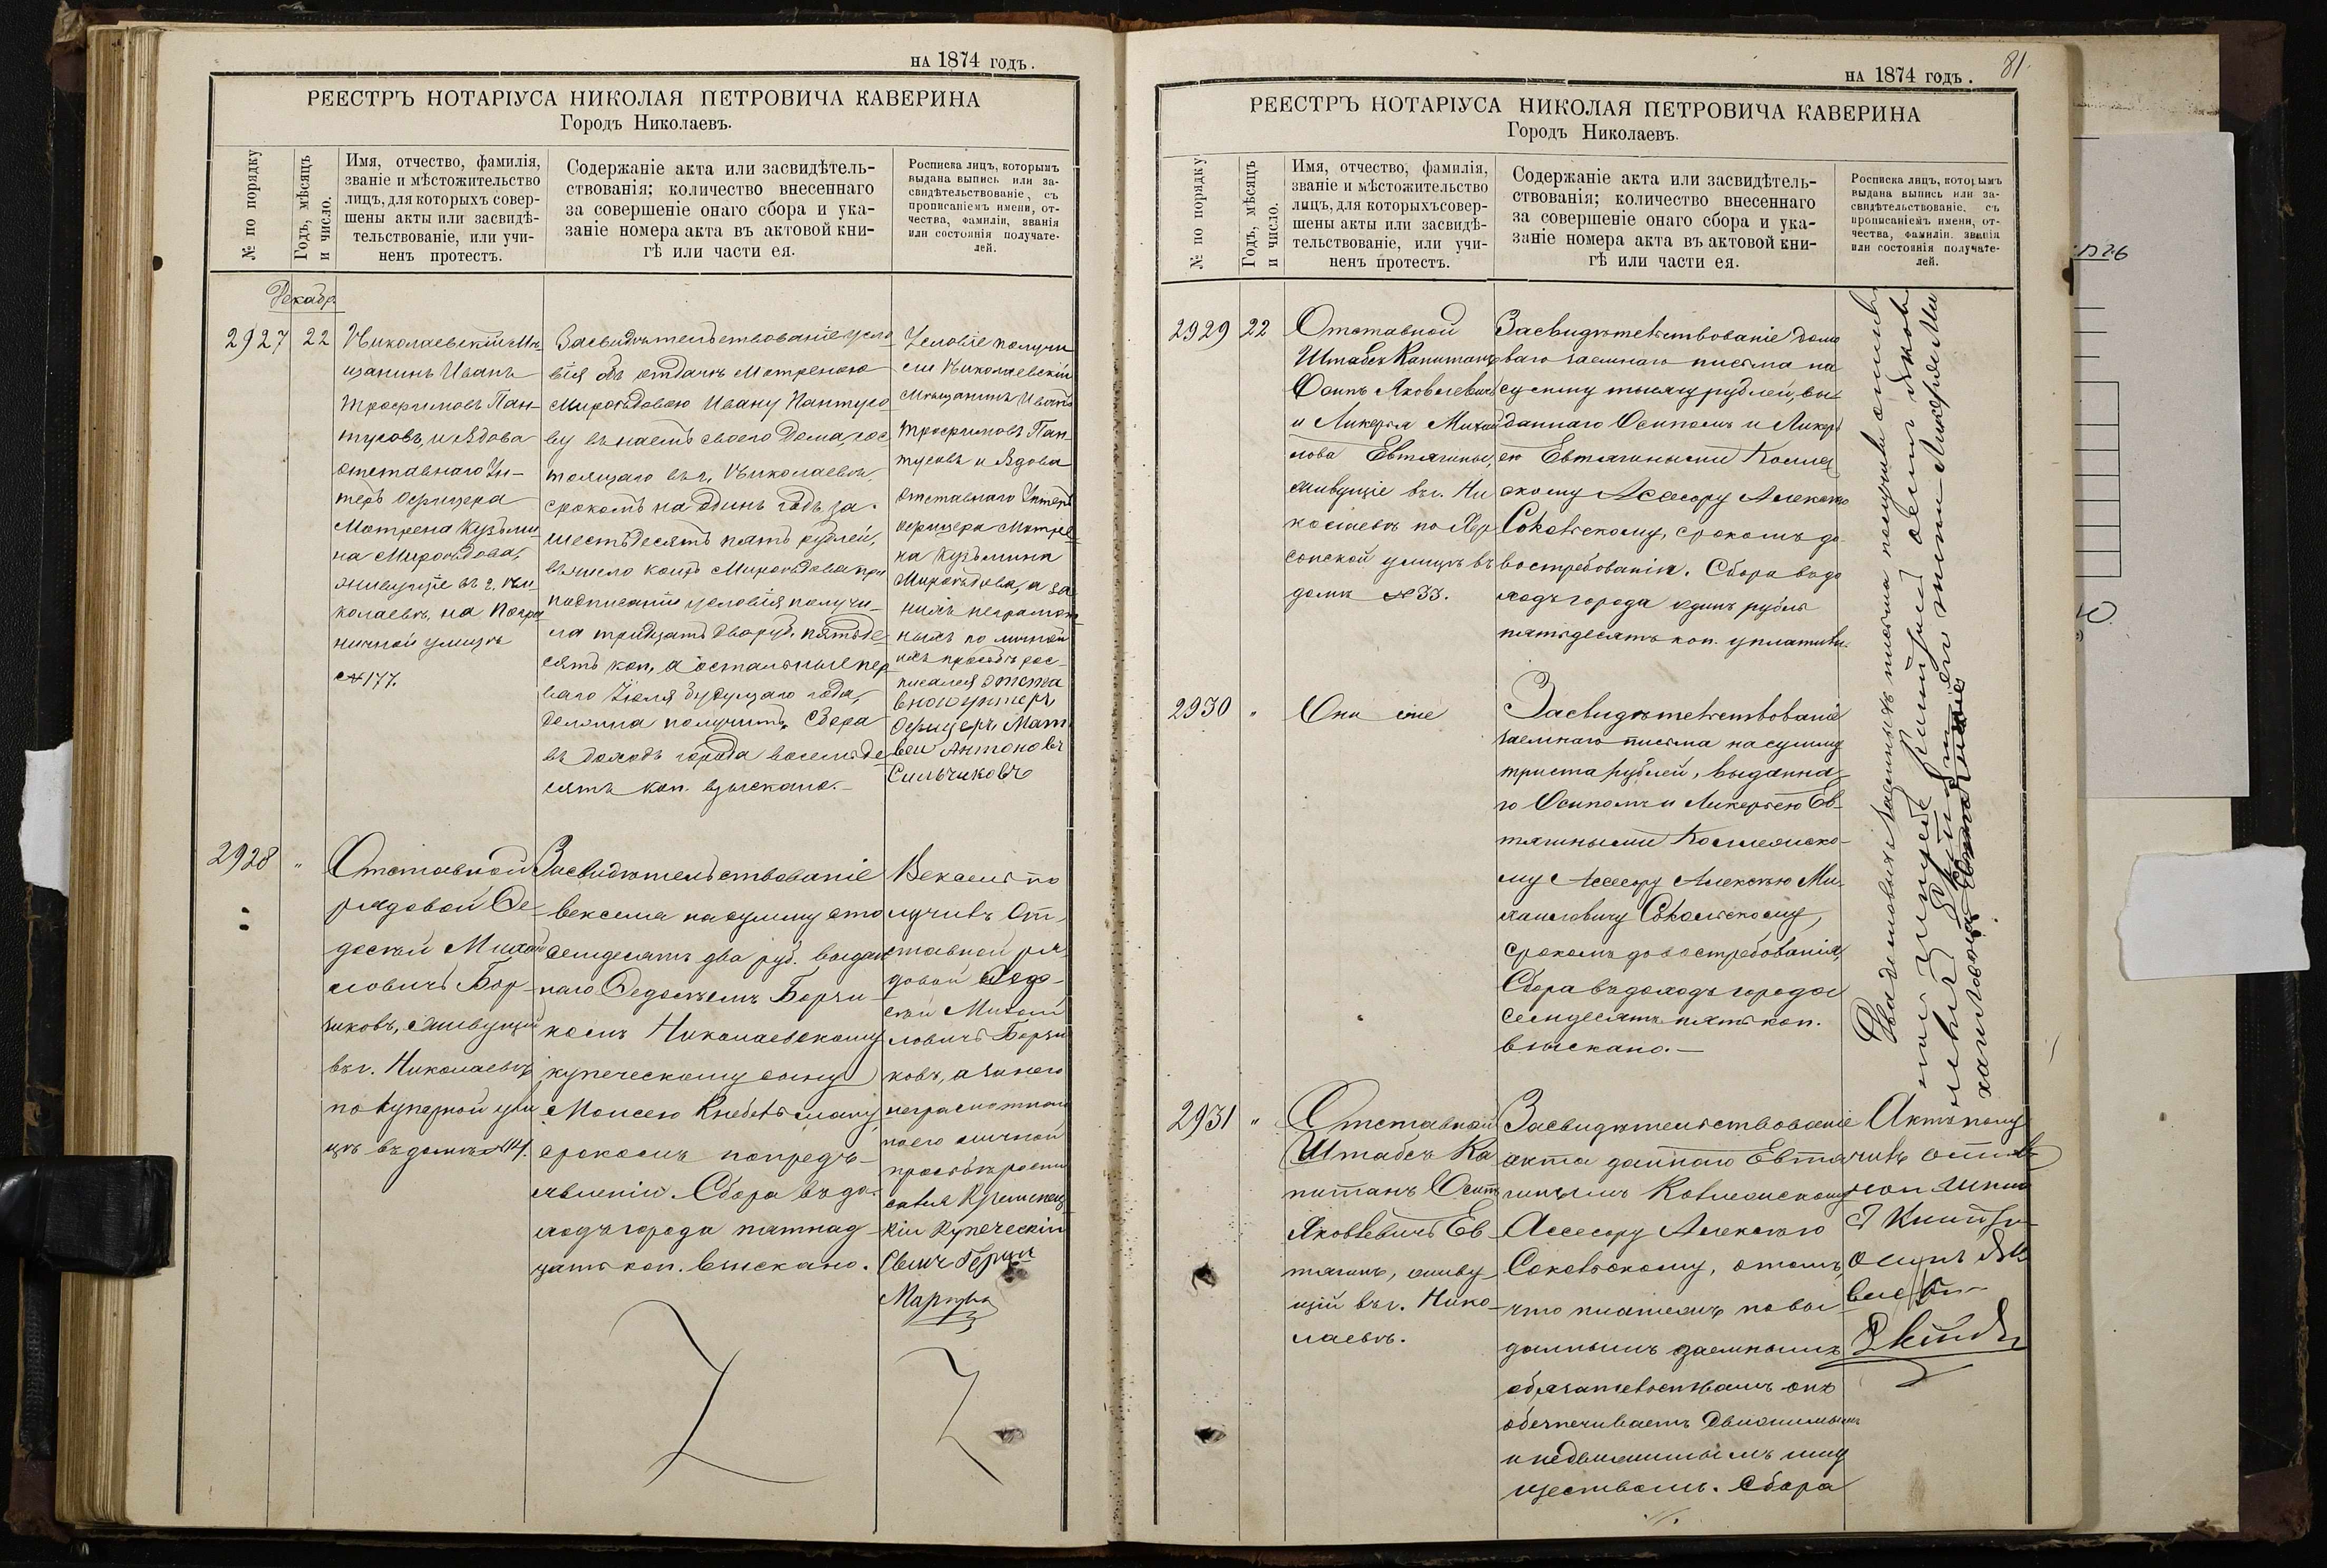 на 1874 годъ.
РЕЕСТРЪ НОТАРІУСА НИКОЛАЯ ПЕТРОВИЧА КАВЕРИНА
Городъ Николаевъ.
№ по порядку
Годъ, мѣсяцъ
и число.
Имя, отчество, фамилія,
званіе и мѣстожительство
лицъ, для которыхъ совер-
шены акты или засвидѣ-
тельствованіе, или учи-
ненъ протестъ.
Содержаніе акта или засвидѣтель-
ствованія; количество внесеннаго
за совершеніе онаго сбора и ука-
заніе номера акта въ актовой кни-
гѣ или части ея.
Росписка лицъ, которымъ
выдана выпись или за-
свидѣтельствованіе, съ
прописаніемъ имени, от-
чества, фамиліи, званія
или состоянія получате-
лей.
Декабр
2927
22
Николаевскій Мѣ-
щанинъ Иванъ
Трофимовъ Пан-
тусовъ, и Вдова
отставнаго Ун-
теръ Офицера
Матрена Кузьми-
на Мироѣдова,
живущіе въ г. Ни-
колаевѣ, на Погра
ничной улицѣ
№ 177.
Засвидѣтельствованіе усло
вія объ отдачѣ Матреною
Мироѣдовою Ивану Пантусо
ву въ наемъ своего дома сос
тоящаго въ г. Николаевѣ,
срокомъ на одинъ годъ, за
шестьдесятъ пять рублей,
въ число коихъ Мироѣдова при
подписаніи условія получи-
ла тридцать два руб. пятьде
сятъ коп, а остальные пер
ваго Іюля будущаго года,
должна получить. Сбора
въ доходъ города восемьде
сятъ коп. взыскано.-
Условіе получи
ли Николаевскій
Мѣщанинъ Иванъ
Трофимовъ Пан-
тусовъ и Вдова
отставнаго Унтеръ
офицера Матре-
на Кузьмина
Мироѣдова, а за
нихъ неграмот
ныхъ по личной
ихъ просьбѣ рос-
писался отста
вной унтеръ
Офицеръ Мат
вей Антоновъ
Сильчиковъ
2928
"
Отставной
рядовой Ѳе-
досѣй Михай
ловичъ Бор-
зиковъ, живущій
въ г. Николаевѣ
по Купорной ули
цѣ въ домѣ №114.
Засвидѣтельствованіе
векселя на сумму сто
семдесятъ два руб. выдан
наго Ѳедосѣемъ Борзи-
комъ Николаевскому
купеческому сыну
Моисею Кнебельману,
срокомъ по предъ-
явленіи. Сбора въ до-
ходъ города пятнад-
цать коп. взыскано.
Вексель по
лучилъ От-
ставной ря
довой Ѳедо-
сѣй Михай
ловичъ Борзи
ковъ, а за него
неграмотнаго
по его личной
просьбѣ роспи
сался
Купеческій
Сынъ
на 1874 годъ.
81
РЕЕСТРЪ НОТАРІУСА НИКОЛАЯ ПЕТРОВИЧА КАВЕРИНА
Городъ Николаевъ.
№ по порядку
Годъ, мѣсяцъ
и число.
Имя, отчество, фамилія,
званіе и мѣстожительство
лицъ, для которыхъ совер-
шены акты или засвидѣ-
тельствованіе, или учи-
ненъ протестъ.
Содержаніе акта или засвидѣтель-
ствованія; количество внесеннаго
за совершеніе онаго сбора и ука-
заніе номера акта въ актовой кни-
гѣ или части ея.
Росписка лицъ, которымъ
выдана выпись или за-
свидѣтельствованіе, съ
прописаніемъ имени, от-
чества, фамиліи, званія
или состоянія получате-
лей.
2929
22
Отставной
Штабсъ Капитанъ
Осипъ Яковлевичъ
и Ликерія Михай
лова Евтягины,
живущіе въ г. Ни
колаевѣ по Хер
сонской улицѣ въ
домѣ № 33.
Засвидѣтельствованіе дома
ваго заемнаго письма на
сумму тысячу рублей, вы-
даннаго Осипомъ и Ликері
ею Евтягиными Коллеж
скому Асесору Алексѣю
Сокольскому, срокомъ до
востребованія. Сбора въ до
ходъ города одинъ рубль
пятьдесятъ коп. уплатили.
2930
"
Они же
Засвидѣтельствованіе
заемнаго письма на сумму
триста рублей, выданна-
го Осипомъ и Ликеріею Ев-
тягиными Коллежско-
му Асесору Алексѣю Ми-
хайловичу Сокольскому,
срокомъ до востребованія,
Сбора въ доходъ города
семдесятъ пять коп.
взыскано.-
Два домовыхъ заемныхъ письма получили
2931
"
Отставной
Штабсъ Ка
питанъ Осипъ
Яковлевичъ Ев
тягинъ, живу
щій въ г. Нико-
лаевѣ.
Засвидѣтельствованіе
акта даннаго Евтя
гинымъ Коллежскому
Асесору Алексѣю
Сокольскому, о томъ,
что платежъ по вы-
даннымъ заемнымъ
обязательствамъ онъ
обезпечиваетъ движимымъ
и недвижимымъ иму
ществомъ. Сбора
Актъ полу
чилъ